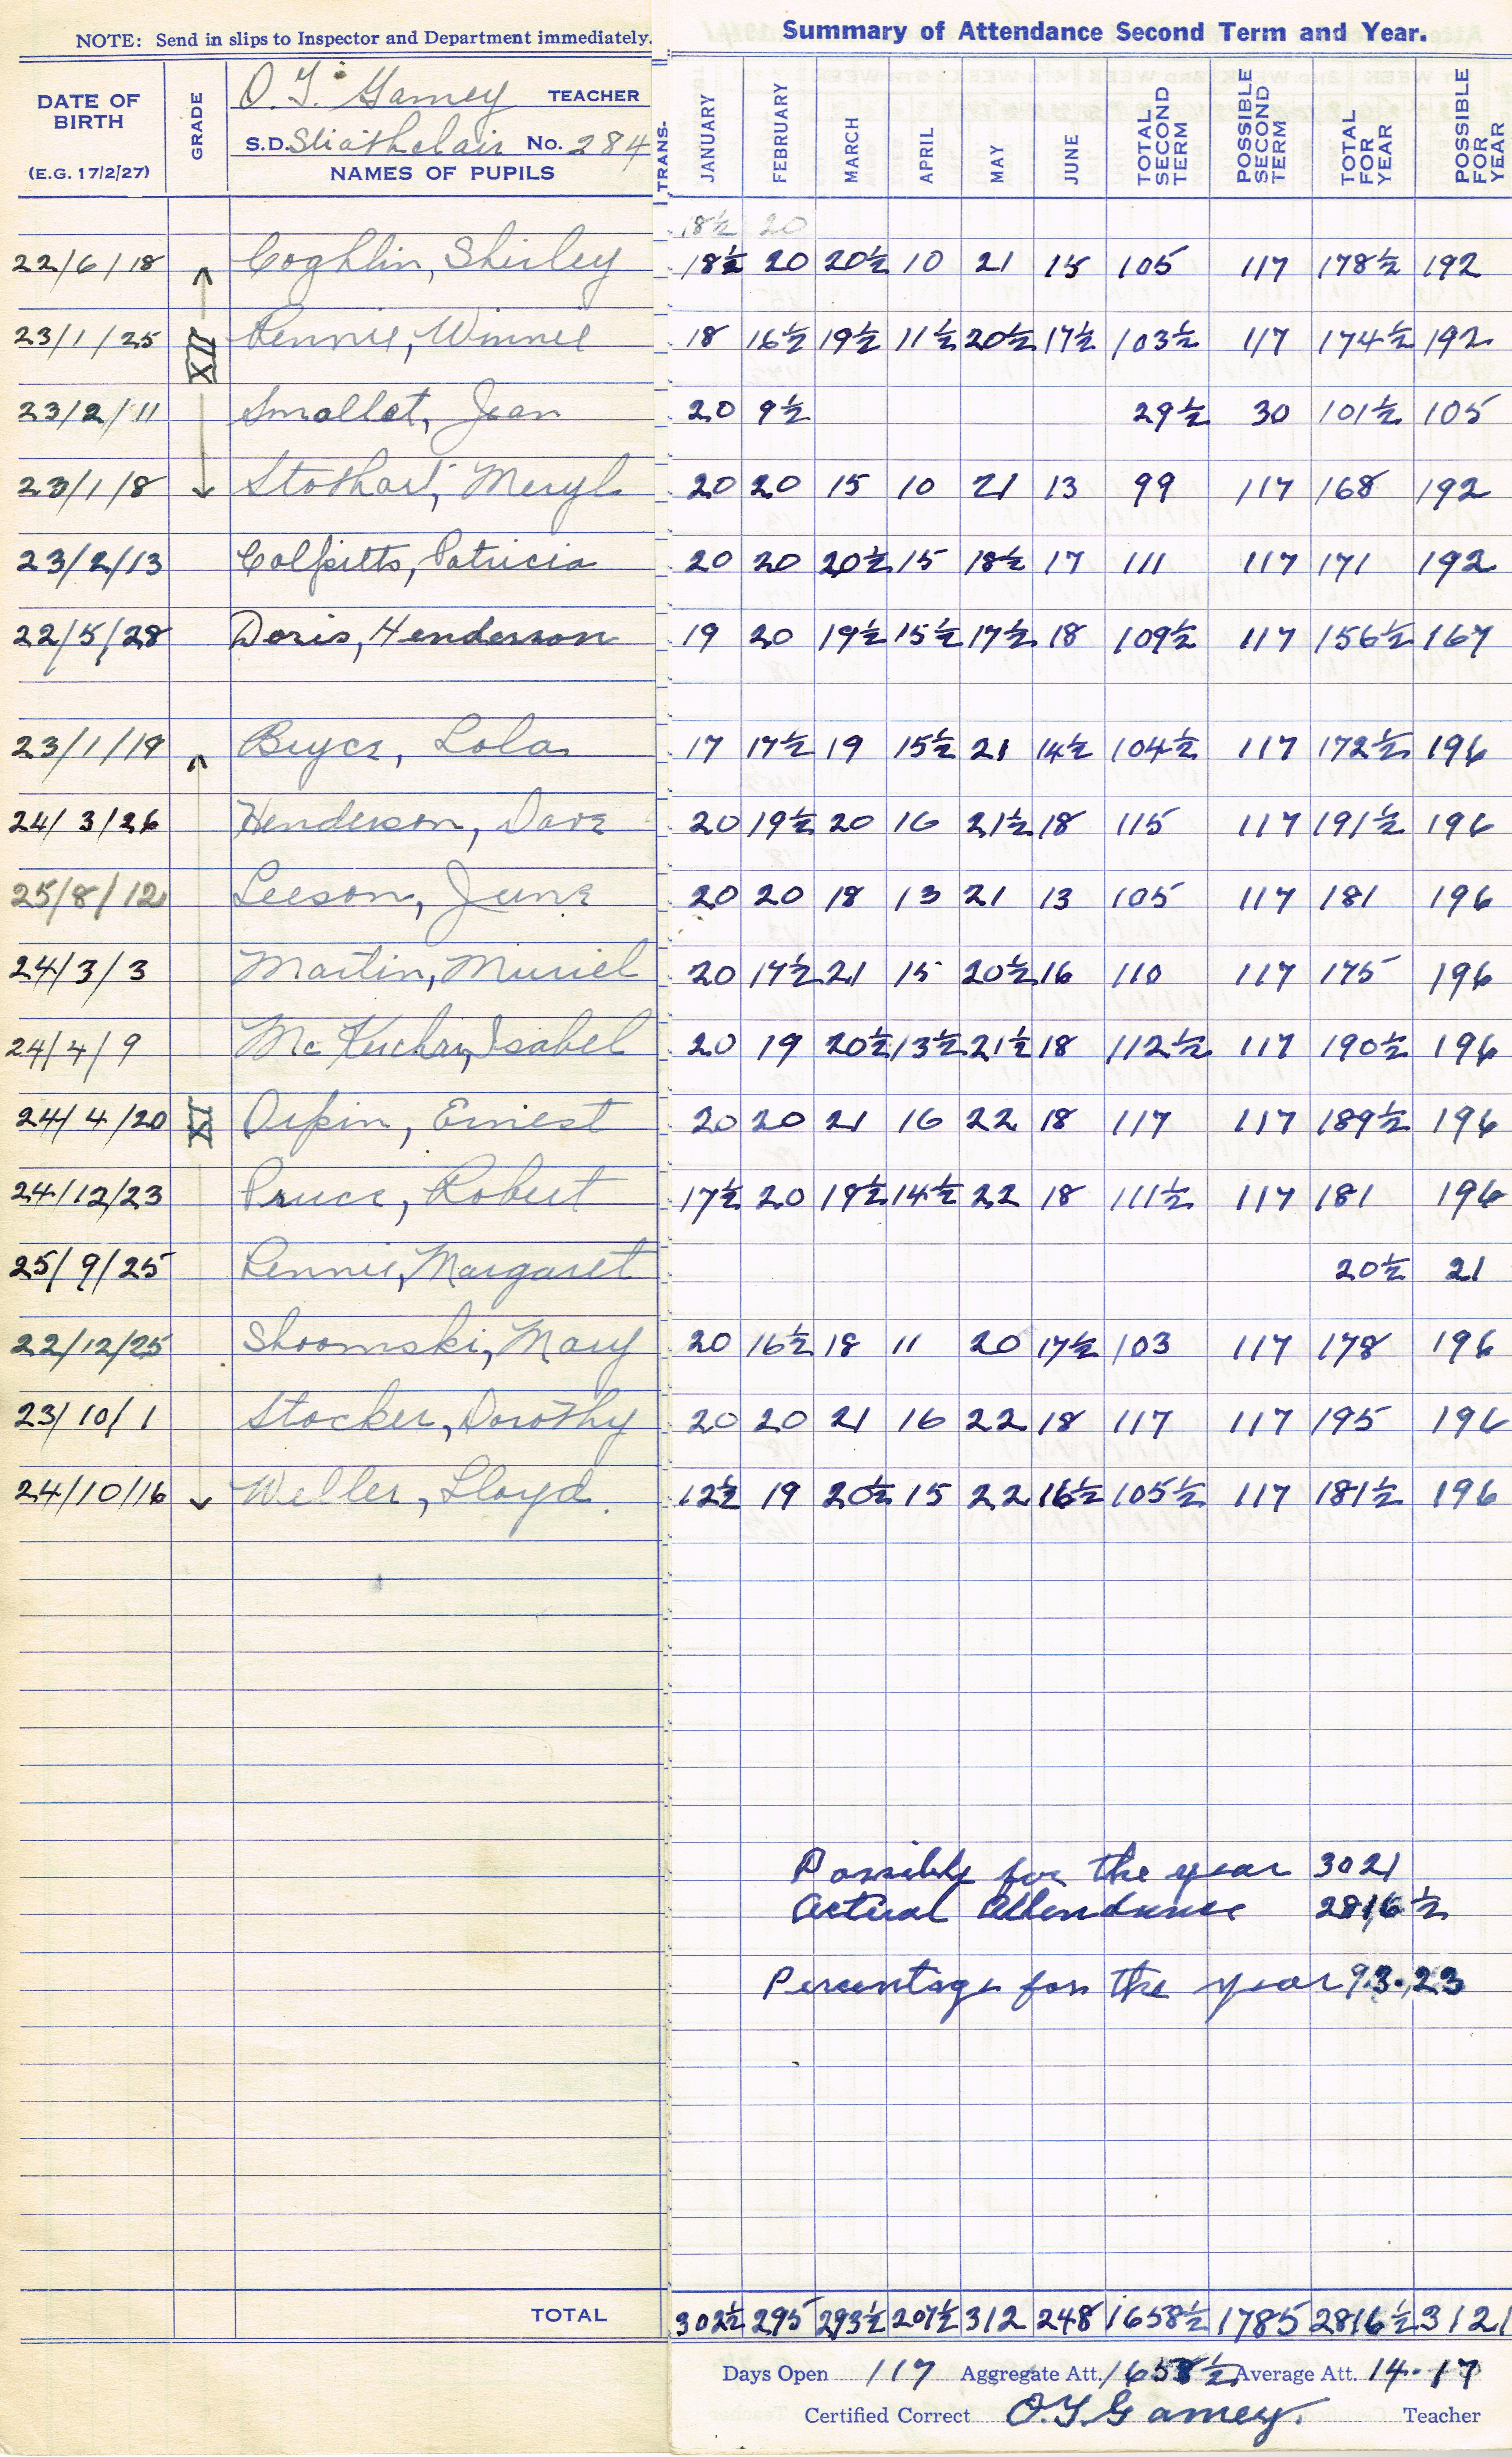 NOTE: Send in slips to Inspector and Department immediately.
Summary of Attendance Second Term and Year.
DATE OF BIRTH (E.G. 17/2/27) GRADE O. G. Gamey TEACHER
S.D. Strathclair No. 284
NAMES OF PUPILS TRANS- JANUARY FEBRUARY MARCH APRIL MAY JUNE TOTAL SECOND TERM POSSIBLE SECOND TERM TOTAL FOR YEAR POSSIBLE FOR YEAR
18½ 20
22/6/18 Coghlin, Shirley 18½ 20 20½ 10 21 15 105 117 178½ 192
23/1/25 XII Rennie, Winnie 18 16½ 19½ 11½ 20½ 17½ 103½ 117 174½ 192
23/2/11 Smallet, Jean 20 9½ 29½ 30 101½ 105
23/1/8 Stothart, Meryl 20 20 15 10 21 13 99 117 168 192
23/2/13 Colpitts, Patricia 20 20 20½ 15 18½ 17 111 117 171 192
22/5/28 Doris, Henderson 19 20 19½ 15½ 17½ 18 109½ 117 156½ 167
23/1/19 Bryce, Lola 17 17½ 19 15½ 21 14½ 104½ 117 172½ 196
24/3/26 Henderson, Dave 20 19½ 20 16 21½ 18 115 117 191½ 196
25/8/12 Leeson, June 20 20 18 13 21 13 105 117 181 196
24/3/3 Martin, Muriel 20 17½ 21 15 20½ 16 110 117 175 196
24/4/9 Isabel 20 19 20½ 13½ 21½ 18 112½ 117 190½ 196
24/4/20 XI Orpin, Ernest 20 20 21 16 22 18 117 117 189½ 196
24/12/23 Pruce, Robert 17½ 20 19½ 14½ 22 18 111½ 117 181 196
25/9/25 Rennie, Margaret 20½ 21
22/12/25 Shoomski, Mary 20 16½ 18 11 20 17½ 103 117 178 196
23/10/1 Stocker, Dorothy 20 20 21 16 22 18 117 117 195 196
24/10/16 Weller, Lloyd. 12½ 19 20½ 15 22 16½ 105½ 117 181½ 196
Possible for the year 3021
Actual Attendance 2816½
Percentage for the year 93.23
TOTAL 302½ 295 293½ 207½ 312 248 1658½ 1785 2816½ 3121
Days Open 117 Aggregate Att. 1658½ Average Att. 14.17
Certified Correct O.G. Gamey. Teacher